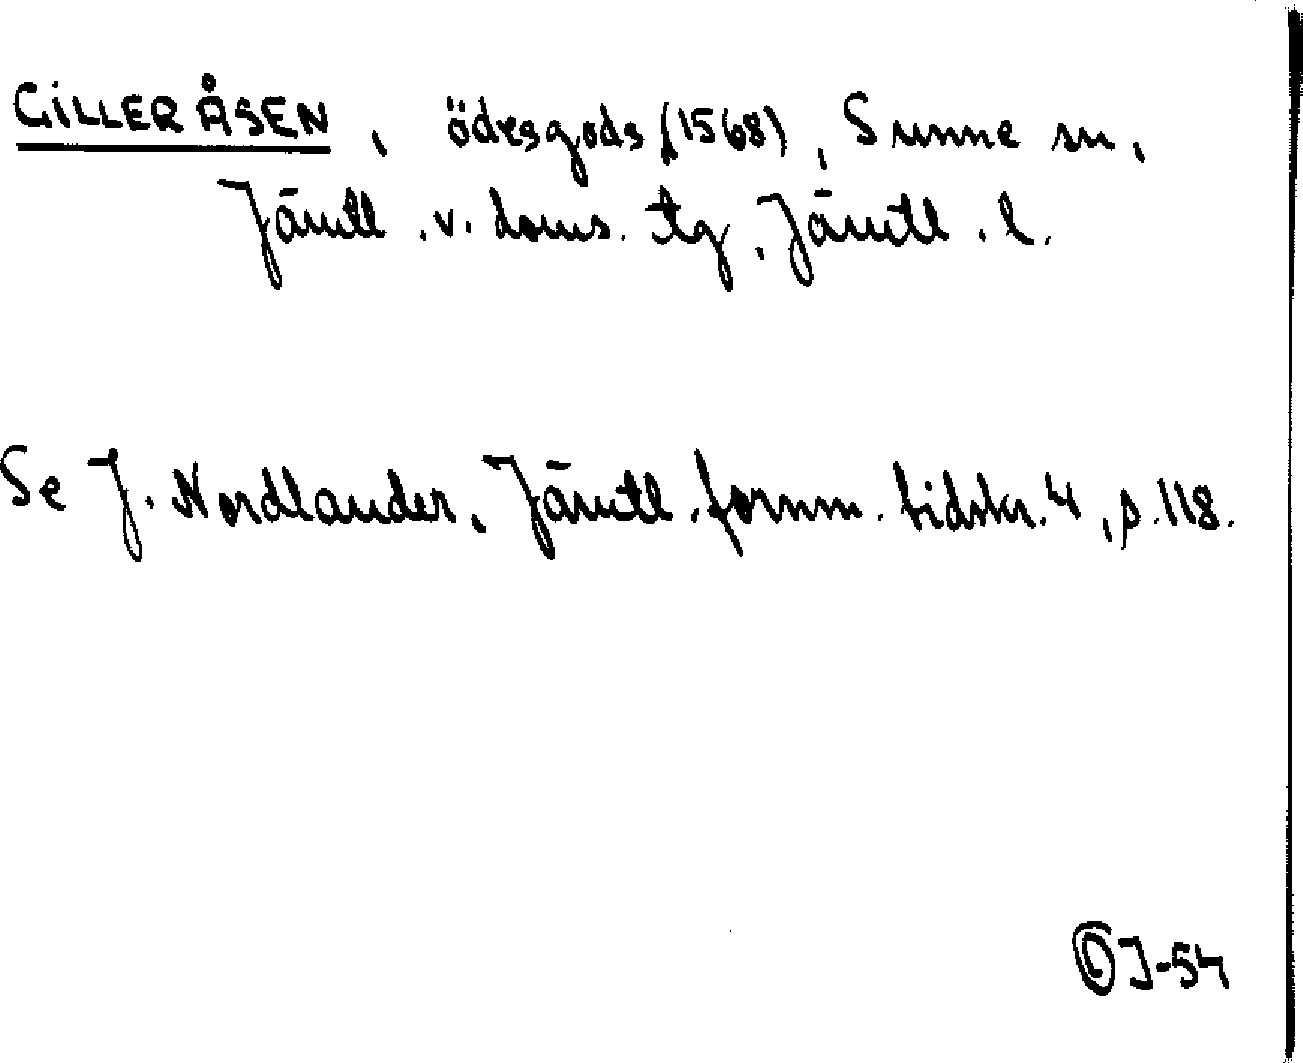 GILLERÅSEN, ödesgods (1568), Sunne sn,
Jämtl. v. doms. tg, Jämtl. l.
Se J. Nordlander, Jämtl. fornm. tidskr. 4, s. 118.
OJ-54